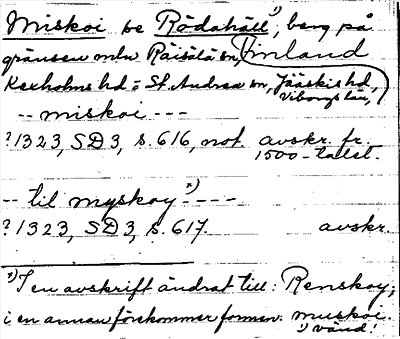 Miskoi se Rödahäll ¹⁾, berg på
gränsen mln Räisälä sn, Finland
Kexholms hd = St. Andrea sn, Jääskis hd,
Viborgs län,
-- miskoi ---
? 1323, SD 3, s. 616, not avskr. fr.
1500-tallet.
-- til myskoy ˣ⁾ ----
? 1323, SD 3, s. 617. avskr.
ˣ⁾ I en avskrift ändrat till: Renskoy;
i en annan förekommer formen: muskoi.
¹⁾ vänd!